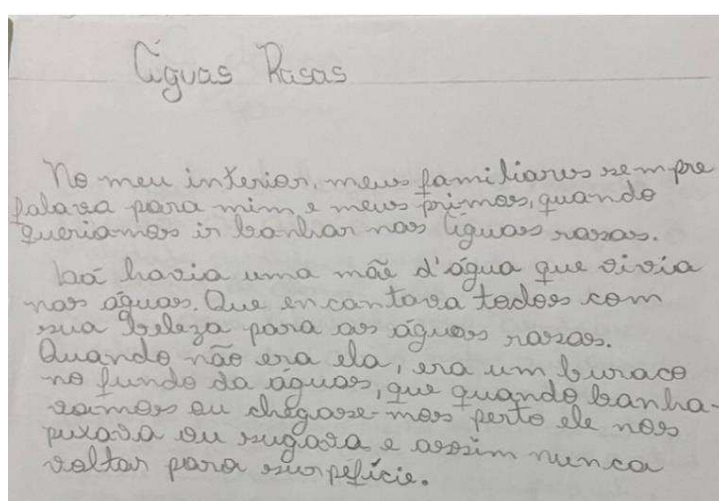 Águas Rasas
No meu interior, meus familiares sempre
falava para mim e meus primos, quando
queriamos ir banhar nas águas rasas.
Lá havia uma mãe d'água que vivia
nas águas. Que encantava todos com
sua beleza para as águas rasas.
Quando não era ela, era um buraco
no fundo da águas, que quando banha-
vamos ou chegasse-mos perto ele nos
puxava ou sugava e assim nunca
voltar para surpefície.